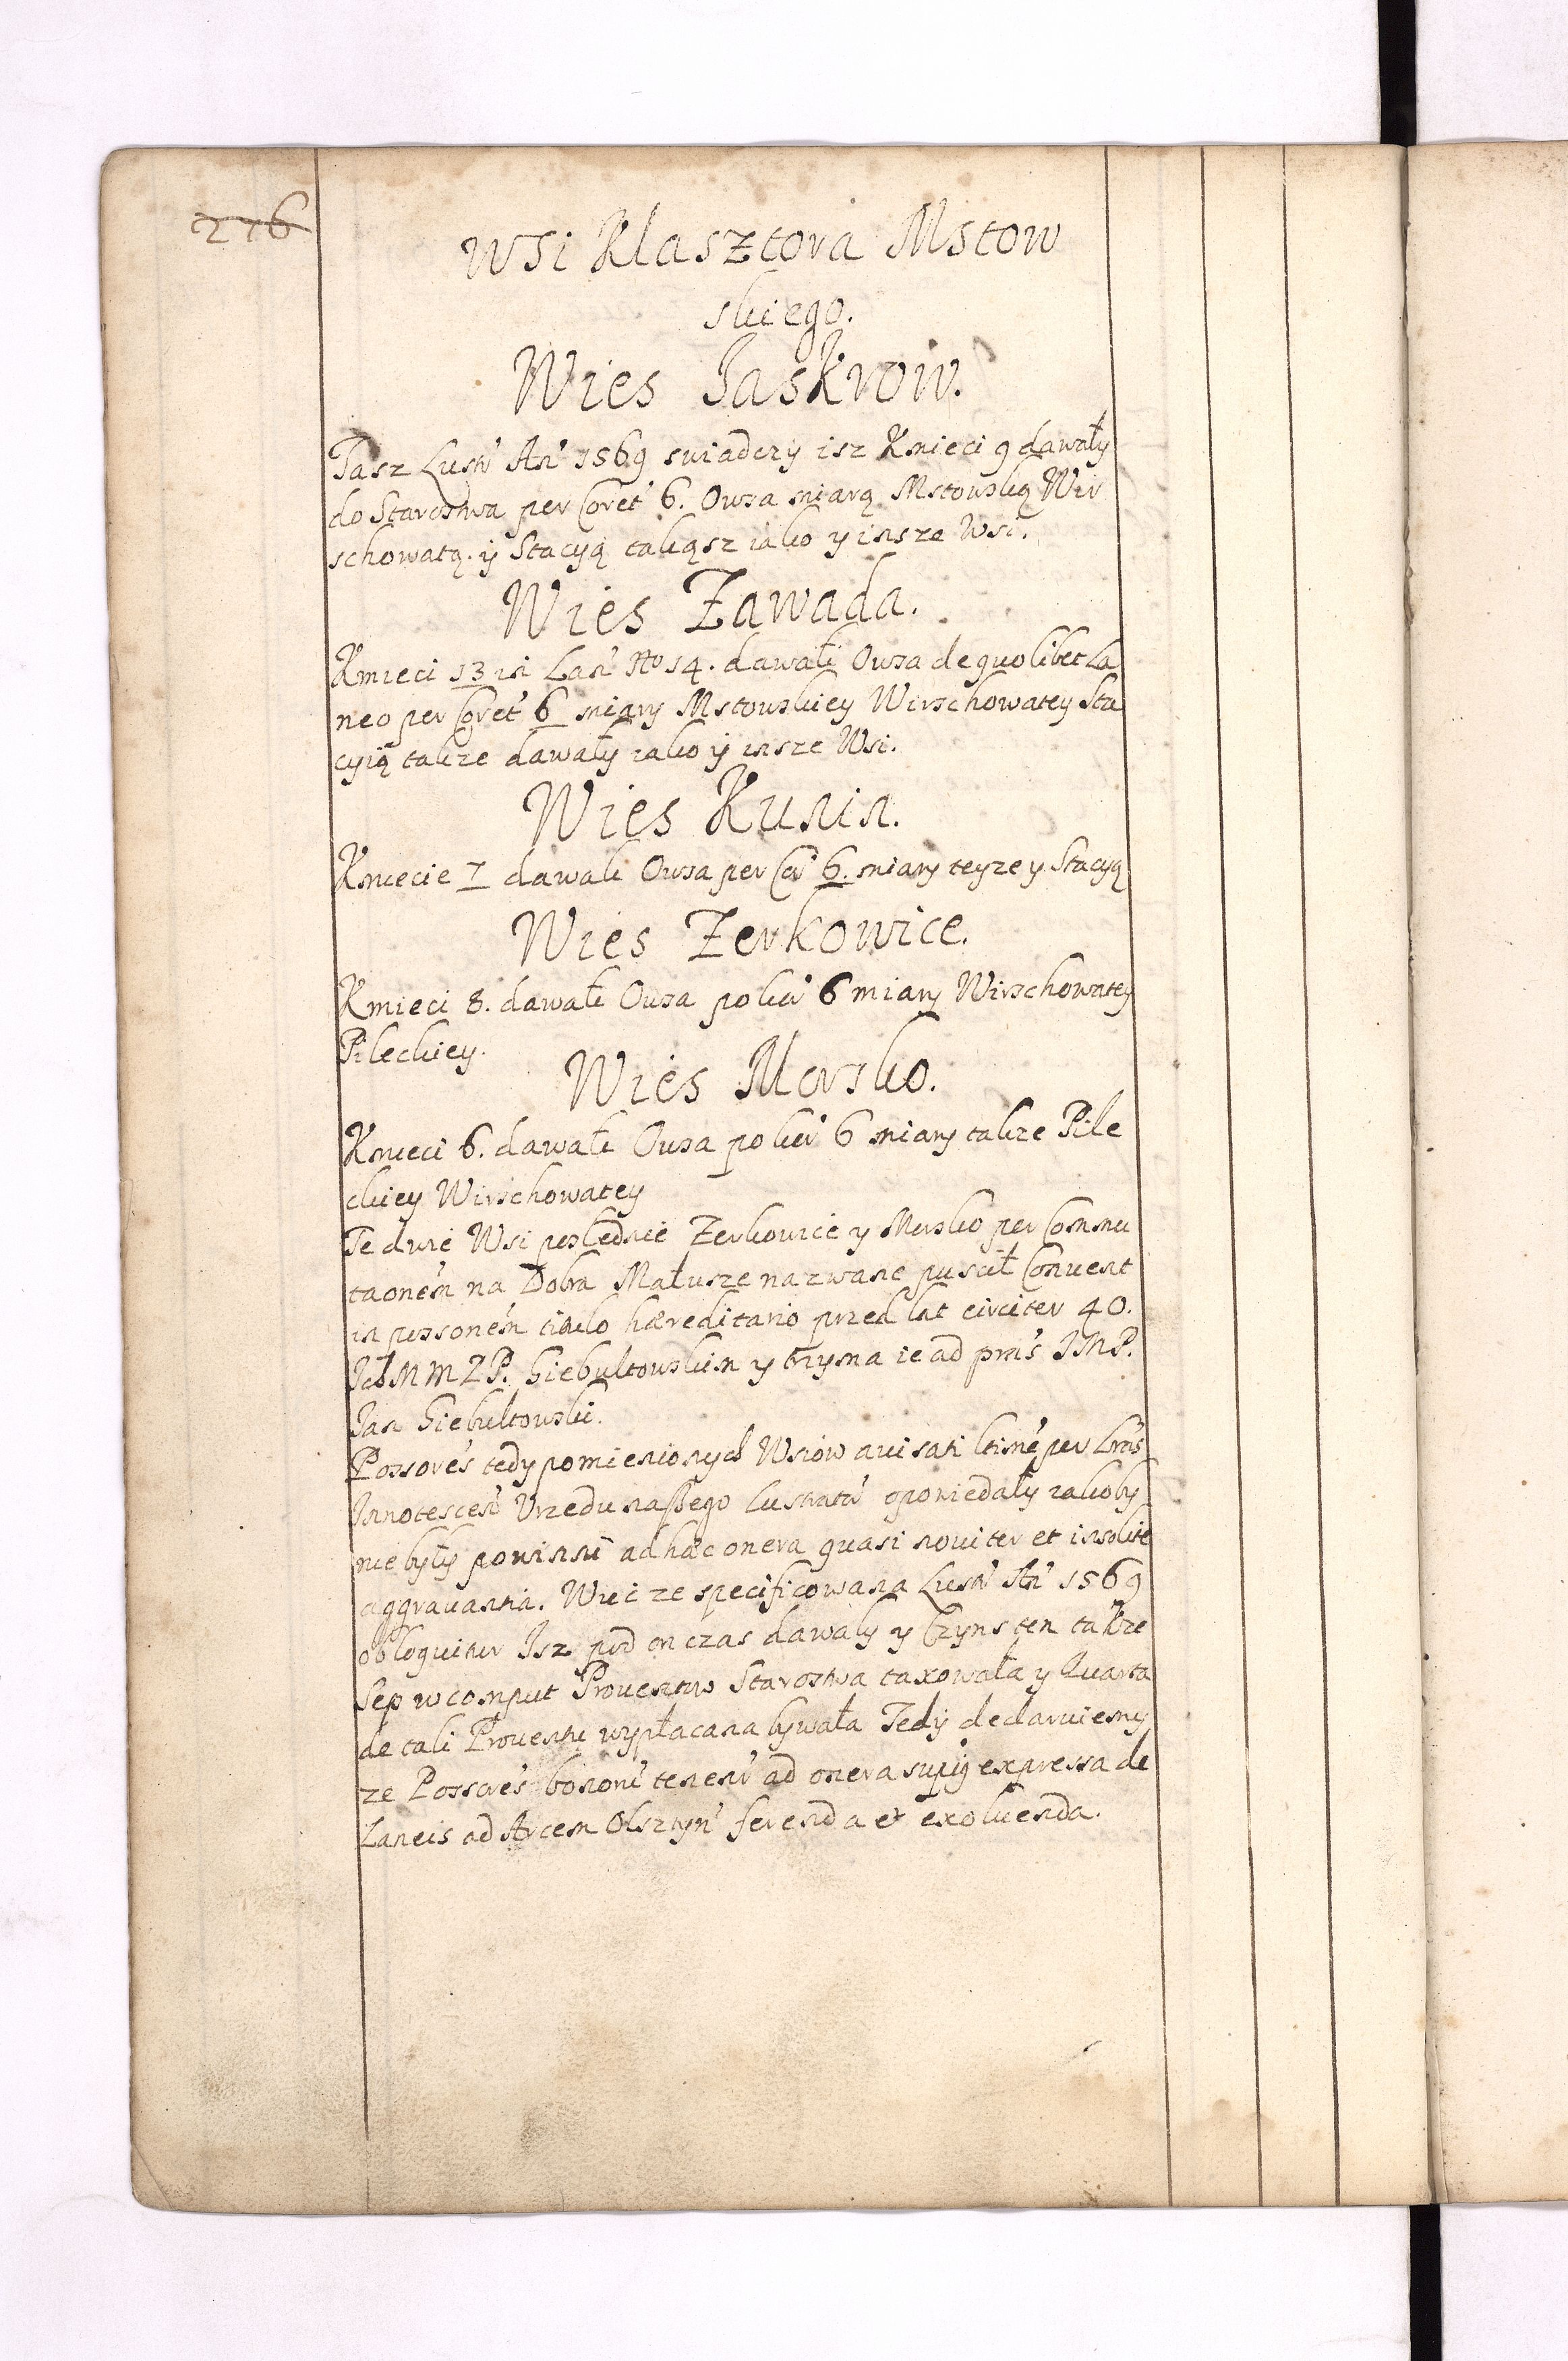 276
Wsi Klasztora Mstow
skiego.
Wies Jaskrow.
Tasz Lustr' An' 1569 swiadczy isz Kmieci 9 dawały
do Starostwa per Coret' 6. Owsa miarą Mstowską Wir
schowatą. y Stacyą takąsz iako y insze Wsi.
Wies Zawada.
Kmieci 13 in Lan' Nro 14. dawałi Owsa de quolibet La
neo per Coret' 6 miary Mstowskiey Wirschowatey Sta
cyią takze dawały iako y insze Wsi.
Wies Kunin.
Kmiecie 7 dawali Owsa per Cor' 6. miary teyze y Stacyą
Wies Zerkowice.
Kmieci 8. dawałi Owsa po kor' 6 miary Wirschowatey
Pileckiey.
Wies Morsko.
Kmieci 6. dawałi Owsa po kor' 6 miary takze Pile
ckiey Wirschowatey
Te dwie Wsi poslednie Zerkowice y Morsko per Commu
taonem na Dobra Małusze nazwane puscił Convent
in possonem titulo hæreditario przed lat circiter 40.
Ich M M Z P. Giebultowskim y trzyma ie ad præns JMP.
Jan Giebultowski.
Possores tedy pomienionych Wsiow avisati ltime per Lras
Innotescen' Vrzedu naszego Lustrator' opowiedały iakoby
nie były powinni ad hæc onera quasi noviter et insolite
aggravantia. Wiec ze specificowana Lustr' An' 1569
obloquitur Isz pod on czas dawały y Czynsten takze
Sep w comput Proventow Starostwa taxowała y Quarta
de tali Proventu wypłacana bywała Tedy declaruiemy
ze Possores bonor' tenent' ad onera supius expressa de
Laneis ad Arcem Olsztyn' ferenda et exolvenda.